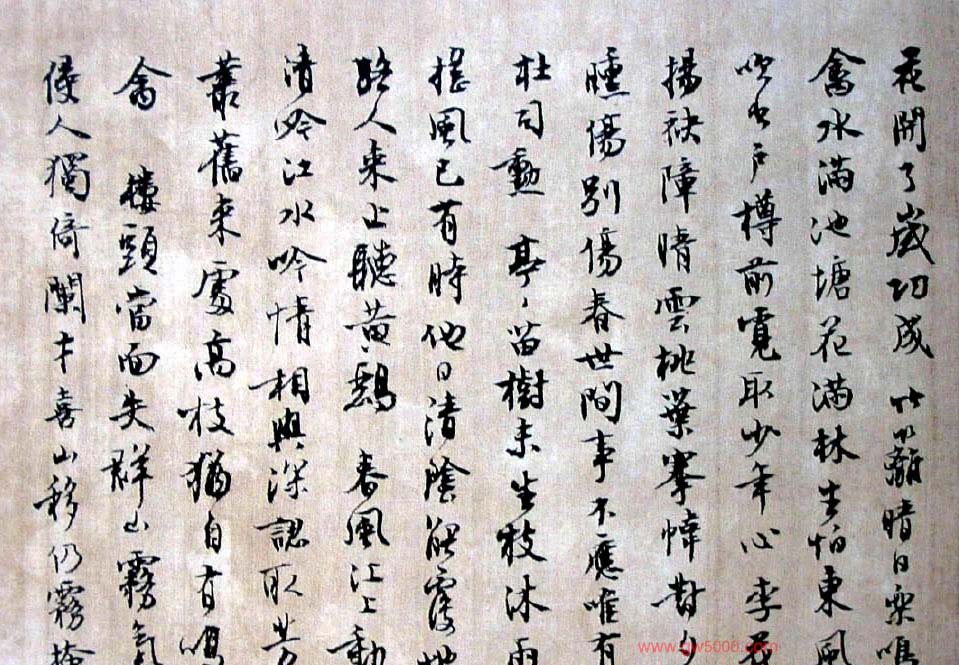 花開了歲功成 竹籬晴日眾鳴
禽水滿池塘花滿林生怕東風
吹出戶樽前寬取少年心李君
揚袂障晴雲桃葉搴幃對夕
曛傷別傷春世間事不應唯有
杜司勳 亭〻苗樹未生枝沐雨
搖風已有時他日清陰能覆地
路人來止聽黃鸝 春風江上動
清吟江水吟情相與深認取芳
叢舊來處高枝猶自有鳴
禽 樓頭當面失群山霧氣
侵人獨倚闌才喜山移仍霧掩